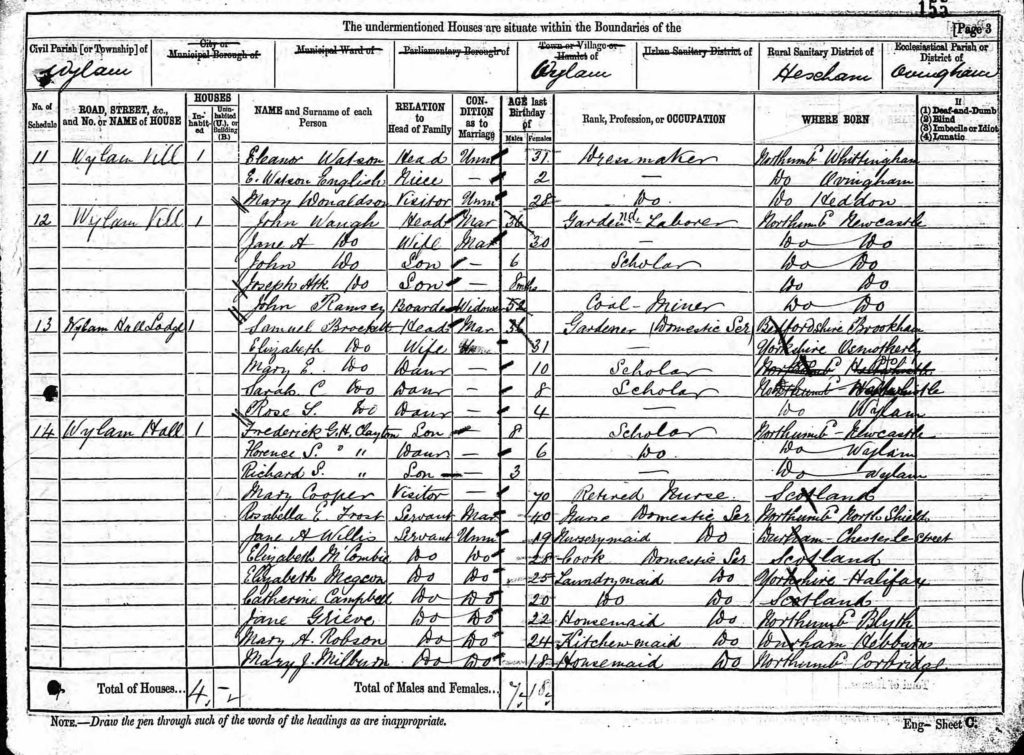 155
The undermentioned Houses are situate within the Boundaries of the [Page 3
Civil Parish [or Township] of City or Municipal Borough of Municipal Ward of Parliamentary Borough of Town or Village or Hamlet of Urban Sanitary District of Rural Sanitary District of Ecclesiastical Parish or District of
Wylam Wylam Hexham Ovingham
No. of Schedule ROAD, STREET, &c., and No. or NAME of HOUSE HOUSES In-habit-ed Unin-habited (U.), or Building (B.) NAME and Surname of each Person RELATION to Head of Family CON-DITION as to Marriage AGE last Birthday of Males Females Rank, Profession, or OCCUPATION WHERE BORN If (1) Deaf-and-Dumb (2) Blind (3) Imbecile or Idiot (4) Lunatic
11 Wylam Vill 1 Eleanor Watson Head Unm 31 Dressmaker Northumbd Whittingham
E. Watson English Niece — 2 — Do Ovingham
Mary Donaldson Visitor Unm 28 Do. Do Heddon
12 Wylam Vill 1 John Waugh Head Mar 36 Garden Laborer Northumbd Newcastle
Jane A Do Wife Mar 30 — Do Do
John Do Son — 6 Scholar Do Do
Joseph Atk Do Son — 8mths Do Do
John Ramsey Boarder Widower 52 Coal-Miner Do Do
13 Wylam Hall Lodge 1 Samuel Brockett Head Mar 36 Gardener (Domestic Ser) Bedfordshire Brookham
Elizabeth Do Wife 31 — Yorkshire Osmotherly
Mary E. Do Daur — 10 Scholar
Sarah C Do Daur — 8 Scholar Northumbd
Rose G. Do Daur — 4 — Do Wylam
14 Wylam Hall 1 Frederick G.H. Clayton Son — 8 Scholar Northumbd - Newcastle
Florence S. " " Daur — 6 Do. Do Wylam
Richard S. " Son — 3 — Do Wylam
Mary Cooper Visitor — 70 Retired Nurse. Scotland
Rosabella E Frost Servant Mar 40 Nurse Domestic Ser Northumbd North Shields
Jane A Willis Servant Unm 19 Nurserymaid Do Durham - Chester le Street
Elizabeth McCombie Do Do 28 Cook Domestic Ser Scotland
Elizabeth Megeon Do Do 25 Laundrymaid Do Yorkshire Halifax
Catherine Campbell Do Do 20 Do Do Scotland
Jane Grieve Do Do 22 Housemaid Do Northumbd Blyth
Mary A. Robson Do Do 24 Kitchenmaid Do Durham Hebburn
Mary J. Milburn Do Do 18 Housemaid Do Northumbd Corbridge
4 Total of Houses... 4 — Total of Males and Females... 7 18
NOTE.—Draw the pen through such of the words of the headings as are inappropriate. Eng— Sheet C.